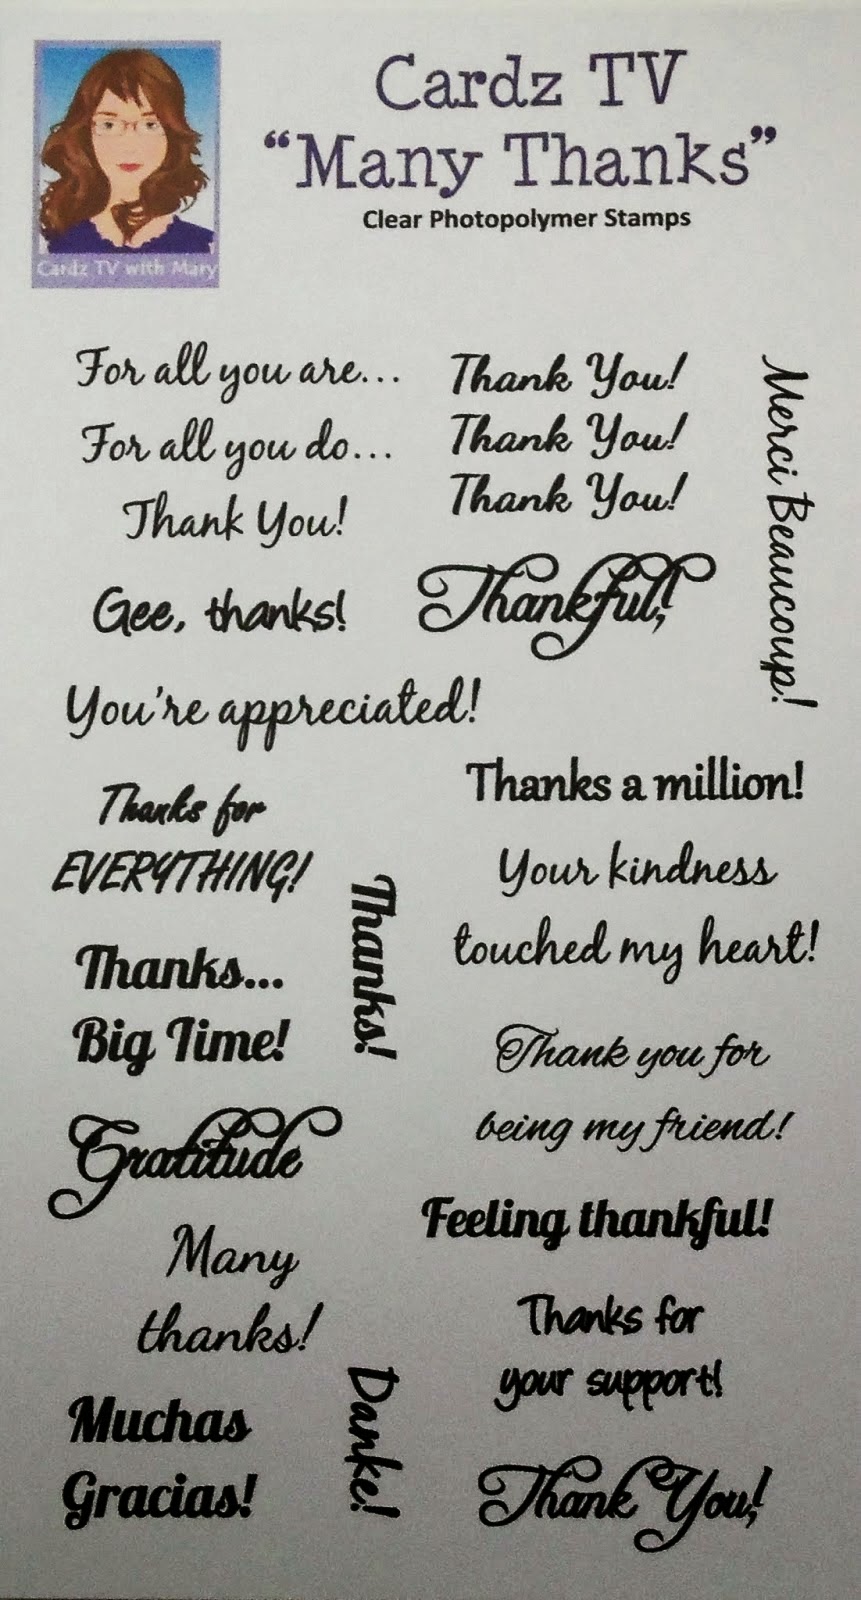 Cardz TV
“Many Thanks”
Clear Photopolymer Stamps
Cardz TV with Mary
For all you are...
For all you do...
Thank You!
Thank You!
Thank You!
Thank You!
Merci Beaucoup!
Gee, thanks!
Thankful!
You're appreciated!
Thanks for
EVERYTHING!
Thanks a million!
Your kindness
touched my heart!
Thanks!
Thanks...
Big Time!
Thank you for
being my friend!
Gratitude
Feeling thankful!
Many
thanks!
Thanks for
your support!
Danke!
Muchas
Gracias!
Thank You!